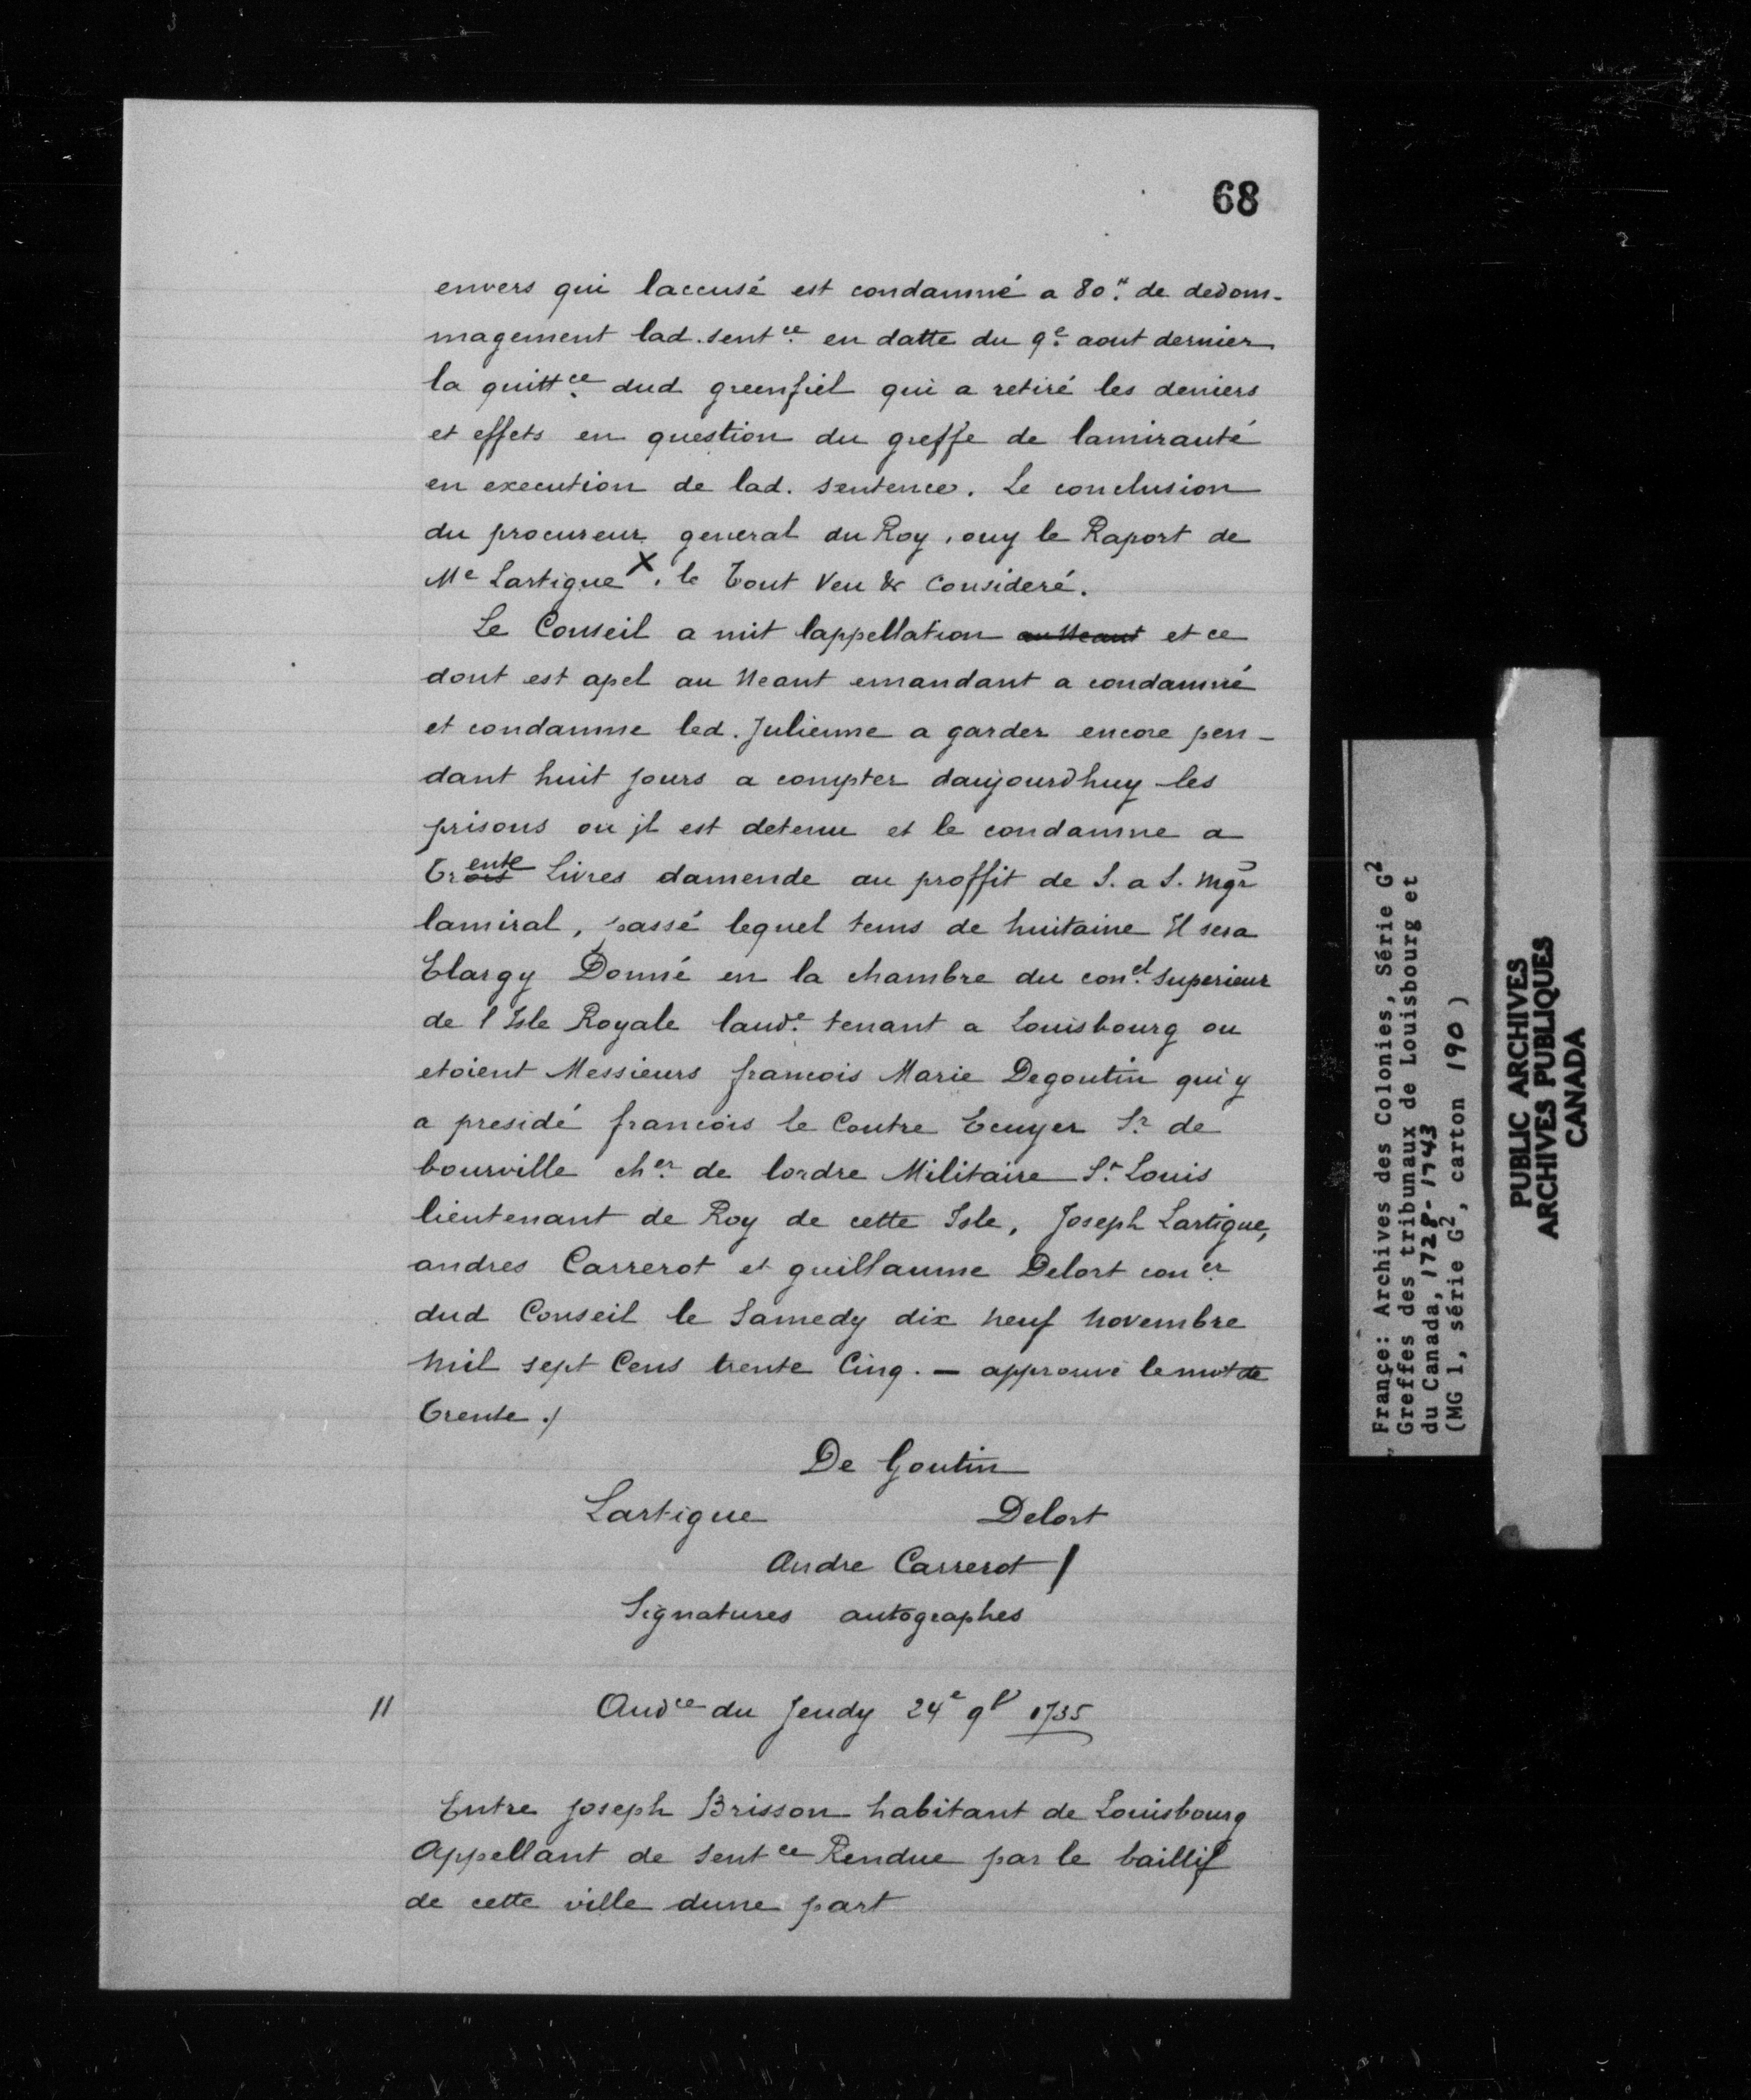 68
envers qui laccusé est condamné a 80.'' de dedom-
magement lad. sentce en datte du 9e aout dernier
la quittce dud greenfiel qui a retiré les deniers
et effets en question du greffe de lamirauté
en execution de lad. sentence. Le conclusion
du procureur general du Roy, ouy le Raport de
Me Lartigue X, le Tout Veu & Consideré.
Le Conseil a mit lappellation au Neant et ce
dont est apel au Neant emandant a condamné
et condamne led. Julienne a garder encore pen-
dant huit jours a compter daujourdhuy les
prisons ou jl est detenu et le condamne a
Trois ente Livres damende au proffit de S. a S. Mgr
lamiral, passé lequel tems de huitaine Il sera
Elargy Donné en la chambre du conel Superieur
de l'Isle Royale laude tenant a Louisbourg ou
etoient Messieurs francois Marie Degoutin qui y
a presidé francois le Coutre Ecuyer Sr de
bourville cher de lordre Militaire St Louis
lieutenant de Roy de cette Isle, Joseph Lartigue,
andres Carrerot et guillaume Delort coner
dud Conseil le Samedy dix neuf Novembre
Mil sept Cens trente Cinq. - approuvé le mot de
Trente ./
De Goutin
Lartigue Delort
Andre Carrerot /
Signatures autographes
11 Audce du Jeudy 24e 9b 1735
Entre Joseph Brisson habitant de Louisbourg
Appellant de Sentce Rendue par le baillif
de cette ville dune part
France: Archives des Colonies, Série G2
Greffes des tribunaux de Louisbourg et
du Canada, 1728-1743
(MG 1, série G2, carton 190)
PUBLIC ARCHIVES
ARCHIVES PUBLIQUES
CANADA